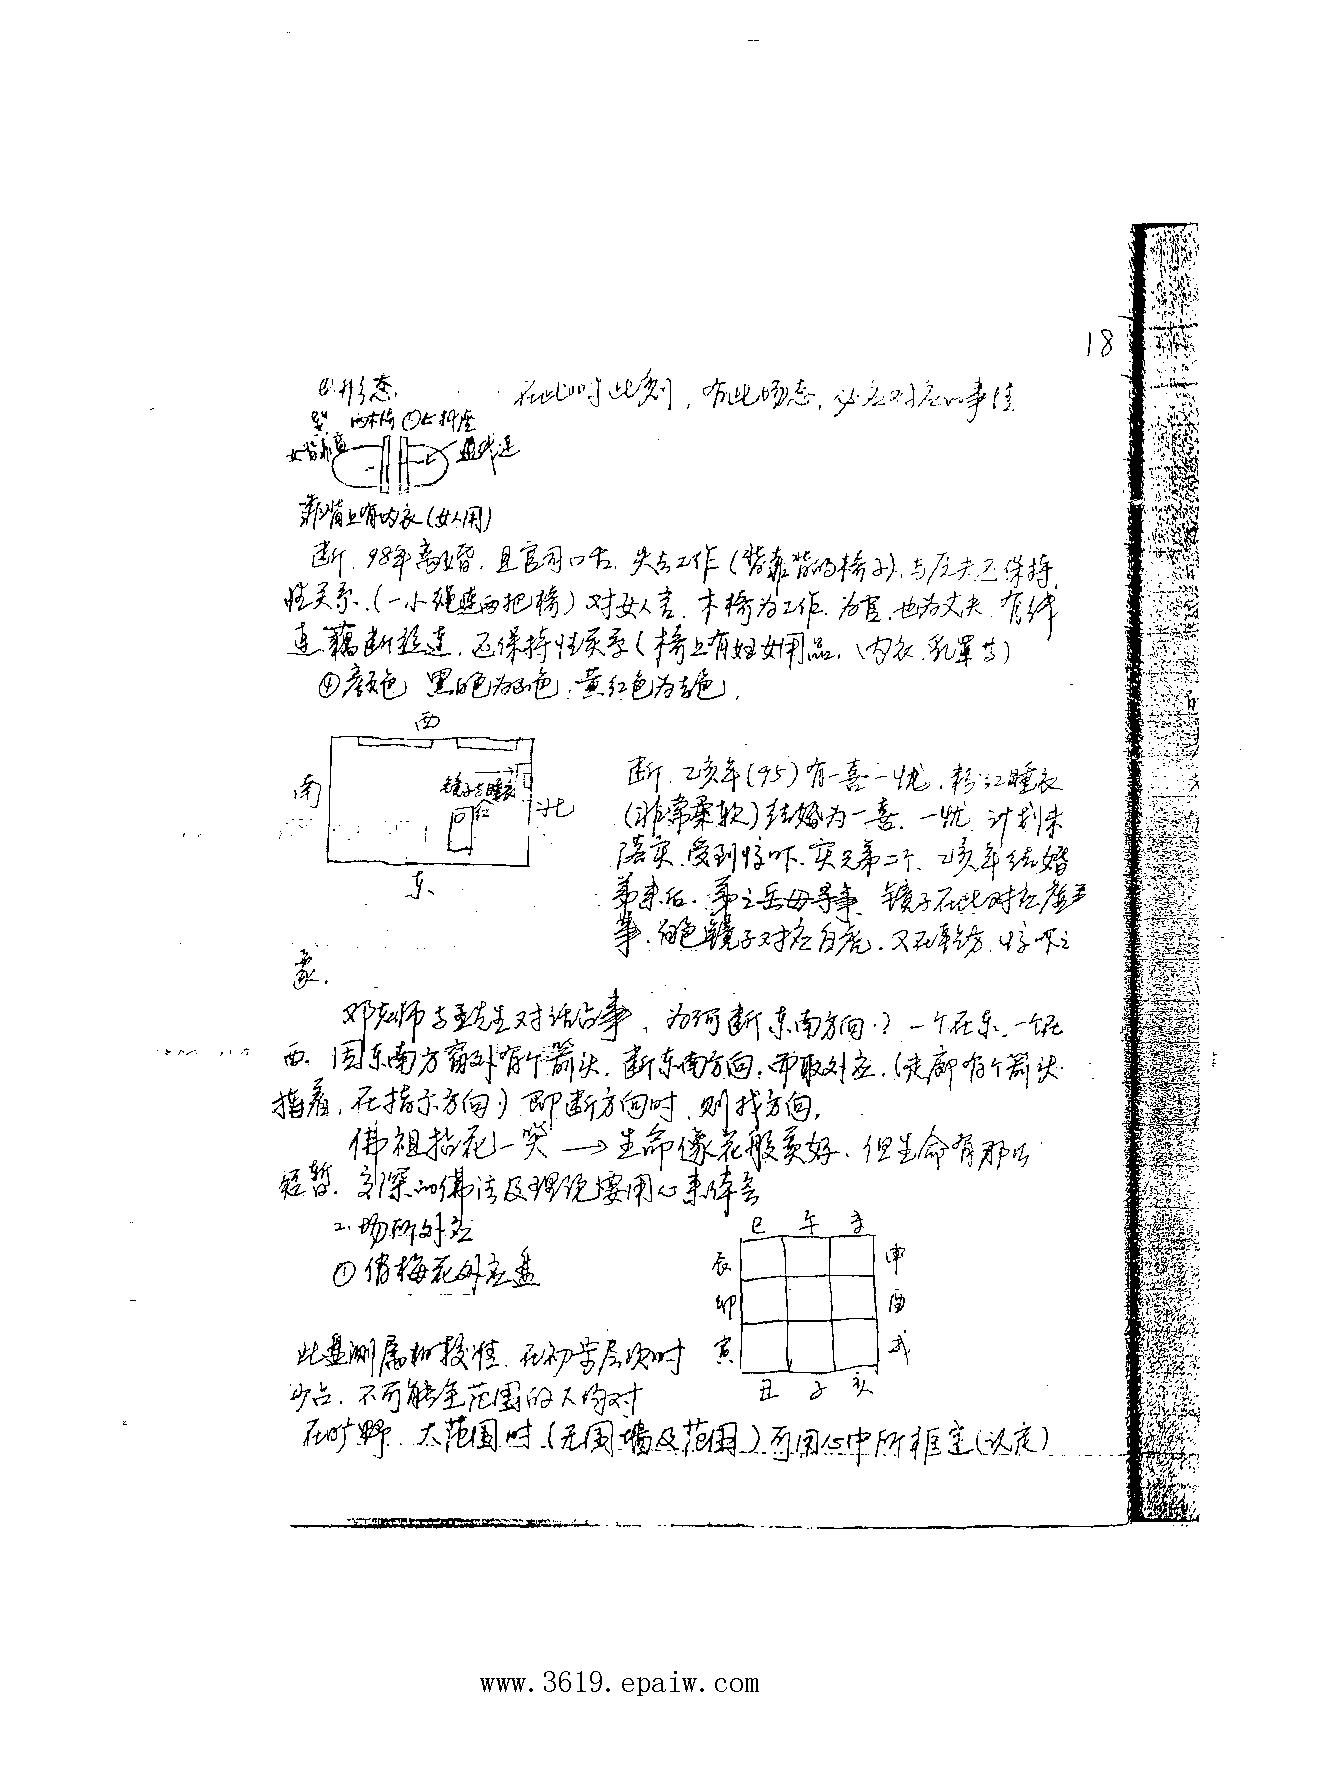 18
形态 在此时此刻，有此场态，必有对应的事情
两木椅
靠背上有内衣(女人用)
断，98年离婚，且官司口舌，失去工作(背靠背的椅子)，与反夫还保持
性关系，(一小绳连两把椅)对女人言，木椅为工作，为官，也为丈夫，有绊
连，藕断丝连，还保持性关系(椅上有妇女用品，内衣，乳罩等)
④颜色 黑白色为凶色，黄红色为吉色，
西
南
镜子 睡衣
北
东
断，乙亥年(95)有一喜一忧，粉红睡衣
(非常柔软)结婚为一喜，一忧，计划未
落实，受到惊吓，实兄弟二个，乙亥年结婚
弟来后，弟之岳母，镜子在此对应
事，白色镜子对应白虎，又在，惊吓之
象，
邓老师与孟先生对话占事，为何断东南方向？一个在东，一个在
西，因东南方窗外有个箭头，断东南方向，即取外应，(走廊有个箭头
指着，在指示方向)即断方向时，则找方向，
佛祖拈花一笑 → 生命像花般美好，但生命有那么
短暂，深的佛法及理论要用心来体会
2、场所外应
①俏梅花外应盘
巳 午 未
辰 申
卯 酉
寅 戌
丑 子 亥
此盘测属相较准，在初学层次时
少占，不可能全范围的人均对
在旷野，大范围时(无围墙及范围)可用心中所框定(认定)
www.3619.epaiw.com